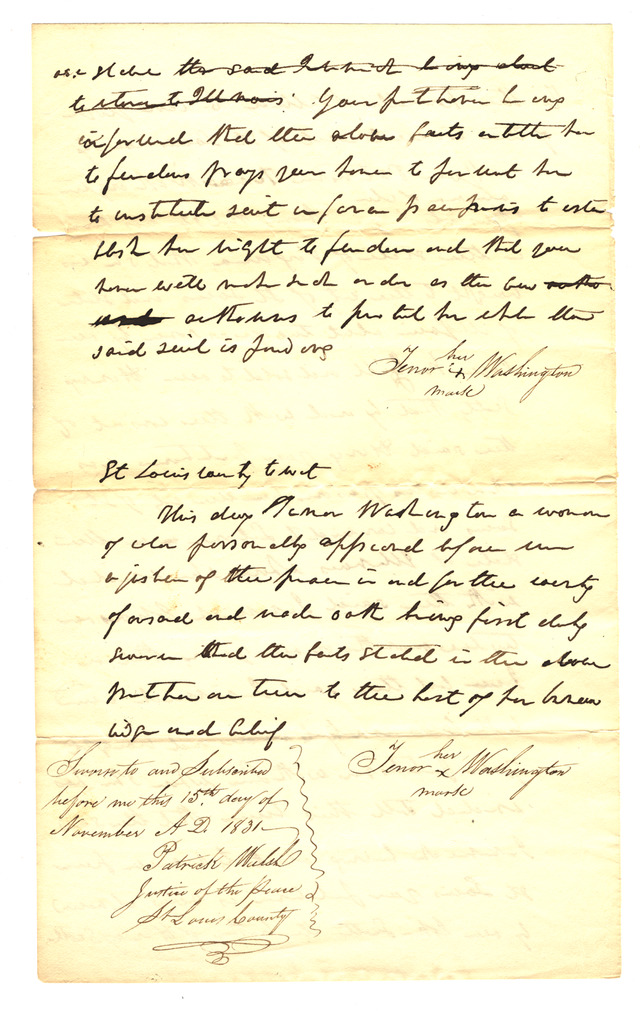 as a slave the said Tabrish being about
to return to Illinois. Your petitioner being
informed that the above facts entitle her
to freedom prays your honor to permit her
to institute suit in forma pauperis to esta
blish her right to freedom and that your
honor will make such order as the law
authorises to protect her while the
said suit is pending
Tenor her x mark Washington
St Louis county to wit
This day Tenor Washington a woman
of color personally appeared before me
a justice of the peace in and for the county
aforesaid and made oath being first duly
sworn that the facts stated in the above
petition are true to the best of her knowl
edge and belief
Tenor her x mark Washington
Sworn to and Subscribed
before me this 15th. day of
November A.D. 1831
Patrick Walsh
Justice of the Peace
St Louis County